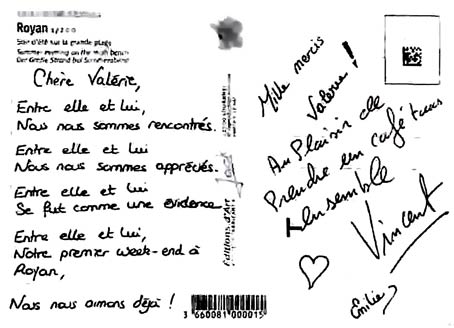 Royan 1/200
Soir d'été sur la grande plage
Summer evening on the main beach
Der Große Strand bei Sommerabend
Chère Valérie,
Entre elle et lui,
Nous nous sommes rencontrés.
Entre elle et lui
Nous nous sommes appréciés.
Entre elle et lui
Se fut comme une évidence.
Entre elle et lui,
Notre premier week-end à
Royan,
Nous nous aimons déjà !
Editions d'Art
3 660081 000015
Mille mercis
Valérie !
Au Plaisir de
Prendre un café tous
ensemble
Vincent
Émilie